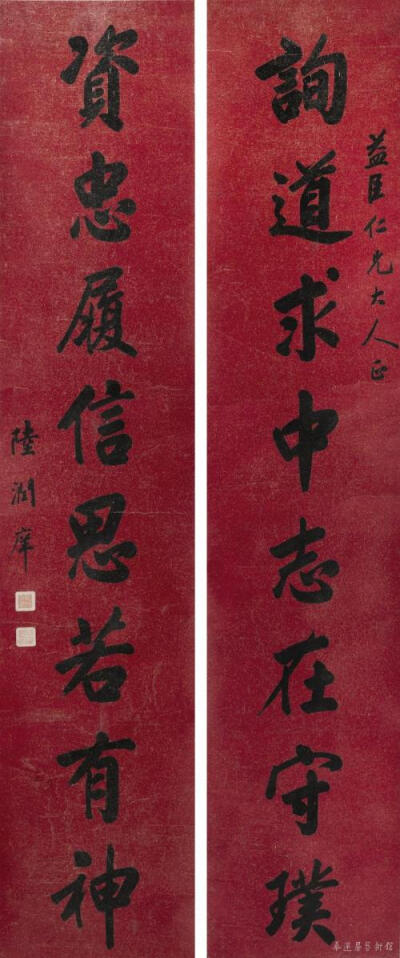 益臣仁兄大人正
詢道求中志在守璞
資忠履信思若有神
陸潤庠